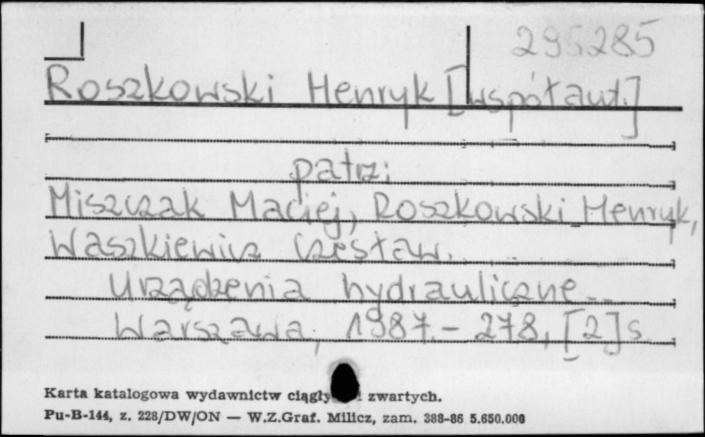 295285
Roszkowski Henryk [współaut.]
patrz:
Miszczak Maciej, Roszkowski Henryk,
Waszkiewicz Czesław.
Urządzenia hydrauliczne...
Warszawa, 1987. - 278, [2] s.
Karta katalogowa wydawnictw zwartych.
Pu-B-144, z. 228/DW/ON — W.Z.Graf. Milicz, zam. 388-86 5.650.000